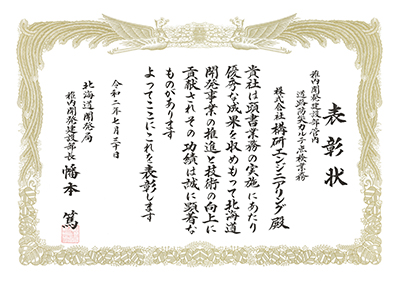 表彰状
稚内開発建設部管内
道路防災カルテ点検業務
株式会社構研エンジニアリング殿
貴社は頭書業務の実施にあたり
優秀な成果を収めもって北海道
開発事業の推進と技術の向上に
貢献されその功績は誠に顕著な
ものがあります
よってここにこれを表彰します
令和二年七月三十日
北海道開発局
稚内開発建設部長 幡本篤